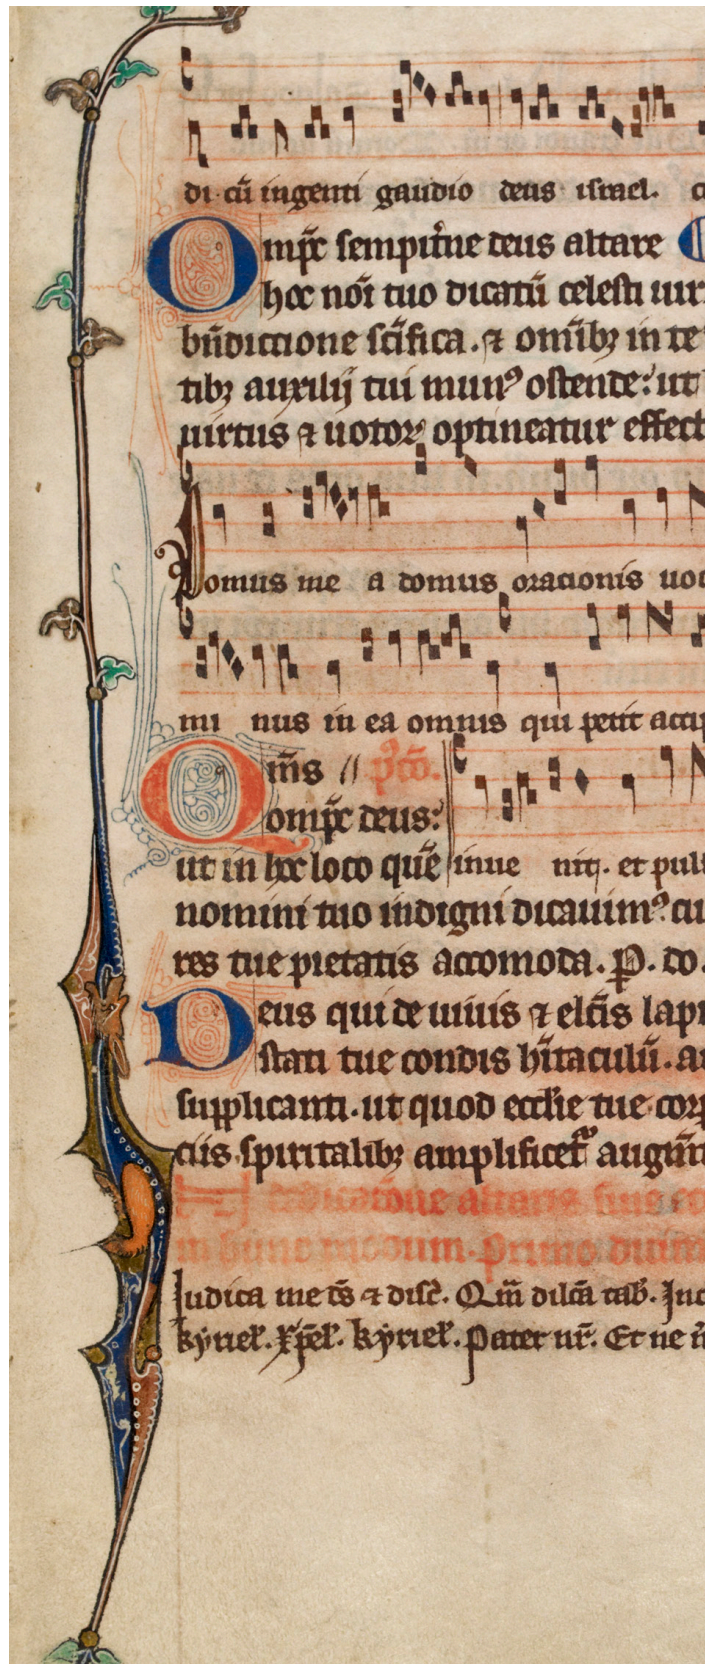 di cū ingenti gaudio deus israel. c
Omp̄c sempit̄ne deus altare
hoc noī tuo dicatū celesti uir
bn̄dictione sc̄ifica. ⁊ om̄ibꝫ in te
tibꝫ auxilij tui munꝰ ostende: ut
uirtus ⁊ uotoꝝ optineatur effect
Domus me a domus orationis uoc
mi nus in ea omnis qui petit accip
Om̄s // p̄cō.
Qompc̄ deus:
ut in hoc loco quē inue nitꝭ. et puls
nomini tuo indigni dicauimꝰ. cu
res tue pietatis accomoda. P. do.
Deus qui de uiuis ⁊ elc̄is lapi
stati tue condis hītaculū. au
supplicanti. ut quod ecclīe tue corp
ciis spiritalibꝫ amplificet᷑ augm̄t
In dedicatōne altaris
in hunc modum. primo
Iudica me d̄s ⁊ disc̄. Qm̄ dilc̄a tab̄. Inc
kyriel̄. xp̄el̄. kyriel̄. Pater nr̄. Et ne n̄